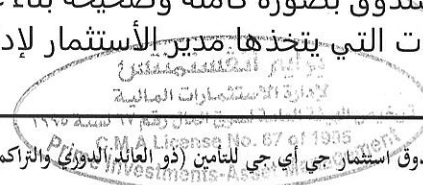 صندوق بصورة كاملة وصحيحة بناء
ت التي يتخذها مدير الأستثمار لإد
برايم انفستمنتس
لادارة الاستثمارات المالية
C.M.A License No. 67 of 1995
Prime Investments-Asset Management
دوق استثمار جي أي جي للتأمين (ذو العائد الدوري والتراكم